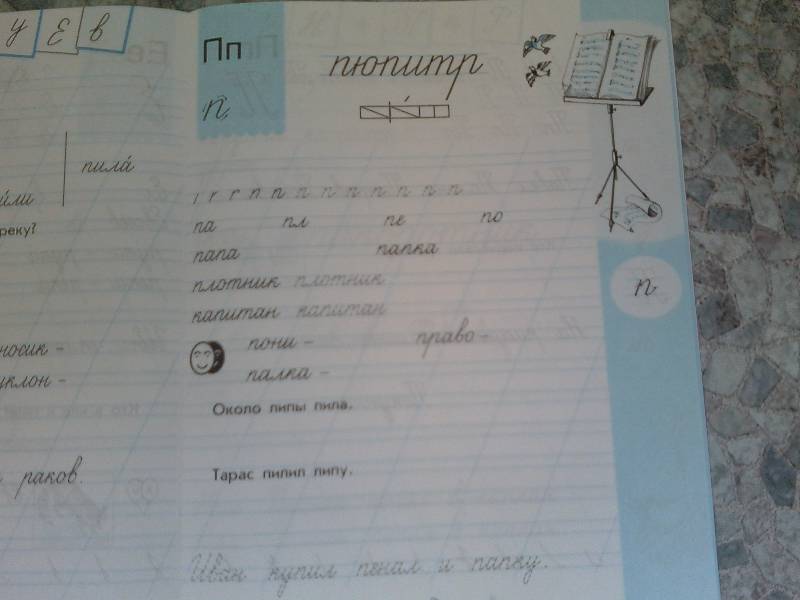 У Е в
Пп
п
пюпитр
пила́
реку?
п п п п п п п п п
па пл пе по
папа папка
плотник плотник
капитан капитан
носик –
пони – право –
уклон –
палка –
Около липы пила.
раков.
Тарас пилил липу.
Иван купил пенал и папку.
п